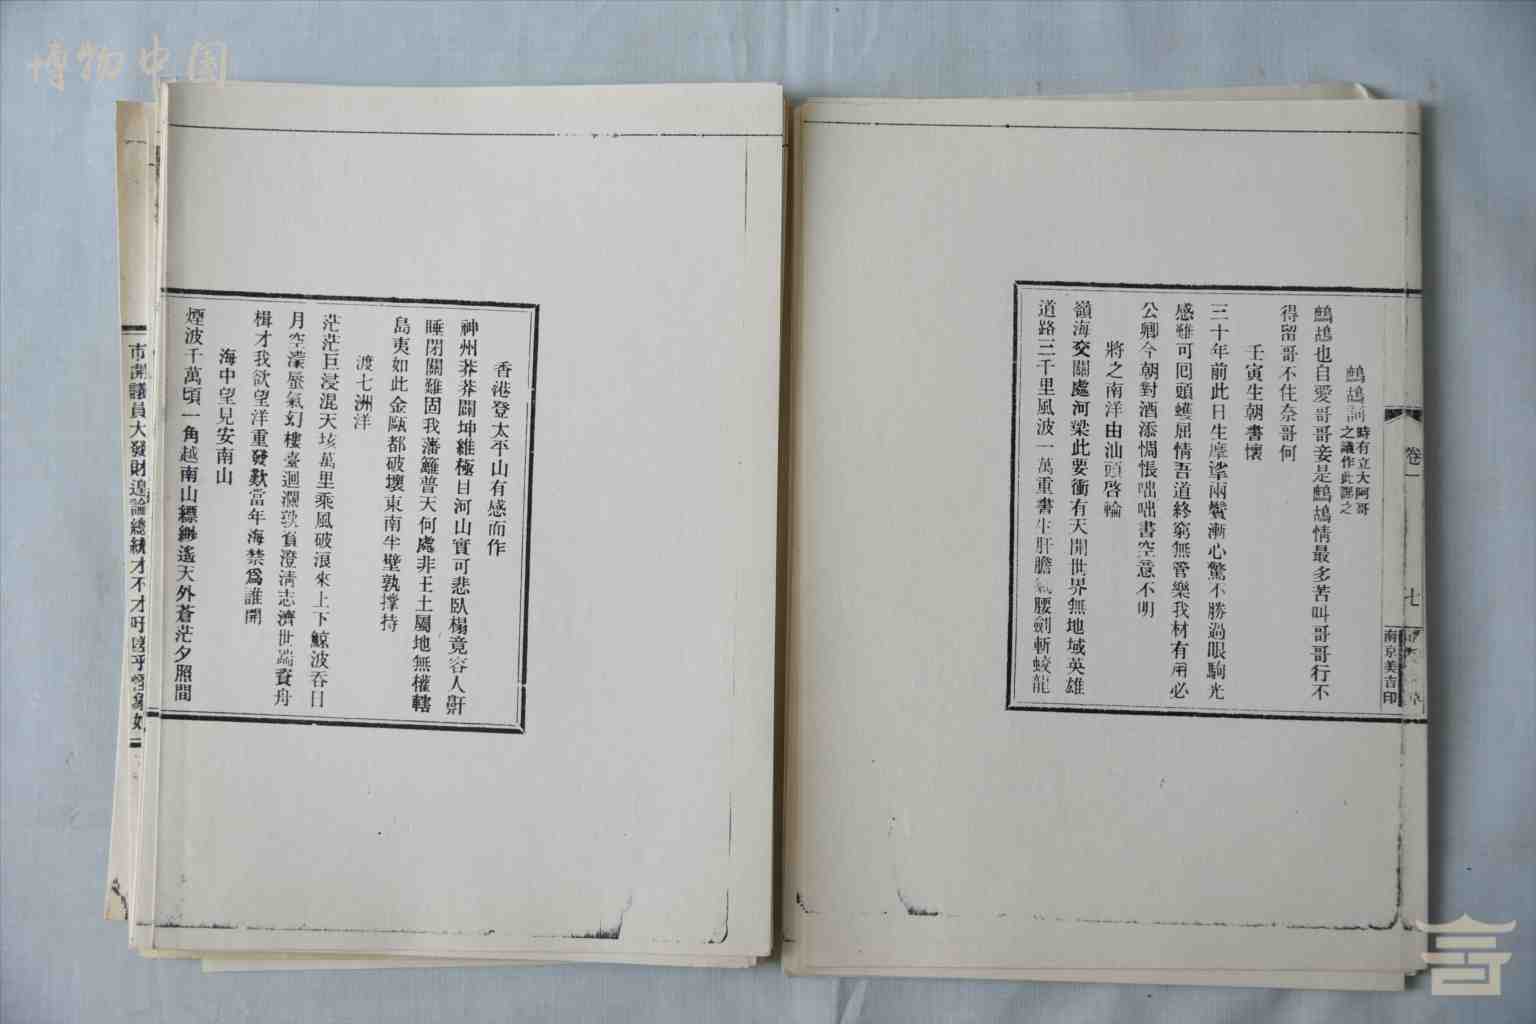 博物中国
鷓鴣詞時有立大阿哥
之議作此謌之
鷓鴣也自愛哥哥妾是鷓鴣情最多苦叫哥哥行不
得留哥不住奈哥何
壬寅生朝書懷
三十年前此日生摩挲兩鬢漸心驚不勝過眼駒光
感難可囘頭蠖屈情吾道終窮無管樂我材有用必
公卿今朝對酒添惆悵咄咄書空意不明
將之南洋由汕頭啓輪
嶺海交關處河梁此要衝有天開世界無地域英雄
道路三千里風波一萬重書生肝膽氣腰劍斬蛟龍
卷一
七
南京美吉印
香港登太平山有感而作
神州莽莽闢坤維極目河山實可悲臥榻竟容人鼾
睡閉關難固我藩籬普天何處非王土屬地無權轄
島夷如此金甌都破壞東南半壁孰撐持
渡七洲洋
茫茫巨浸混天垓萬里乘風破浪來上下鯨波吞日
月空濛蜃氣幻樓臺迴瀾欵負澄清志濟世端賚舟
楫才我欲望洋重發歎當年海禁爲誰開
海中望見安南山
煙波千萬頃一角越南山縹緲遙天外蒼茫夕照間
市開議員大發財遑論總統才不才吁嗟乎